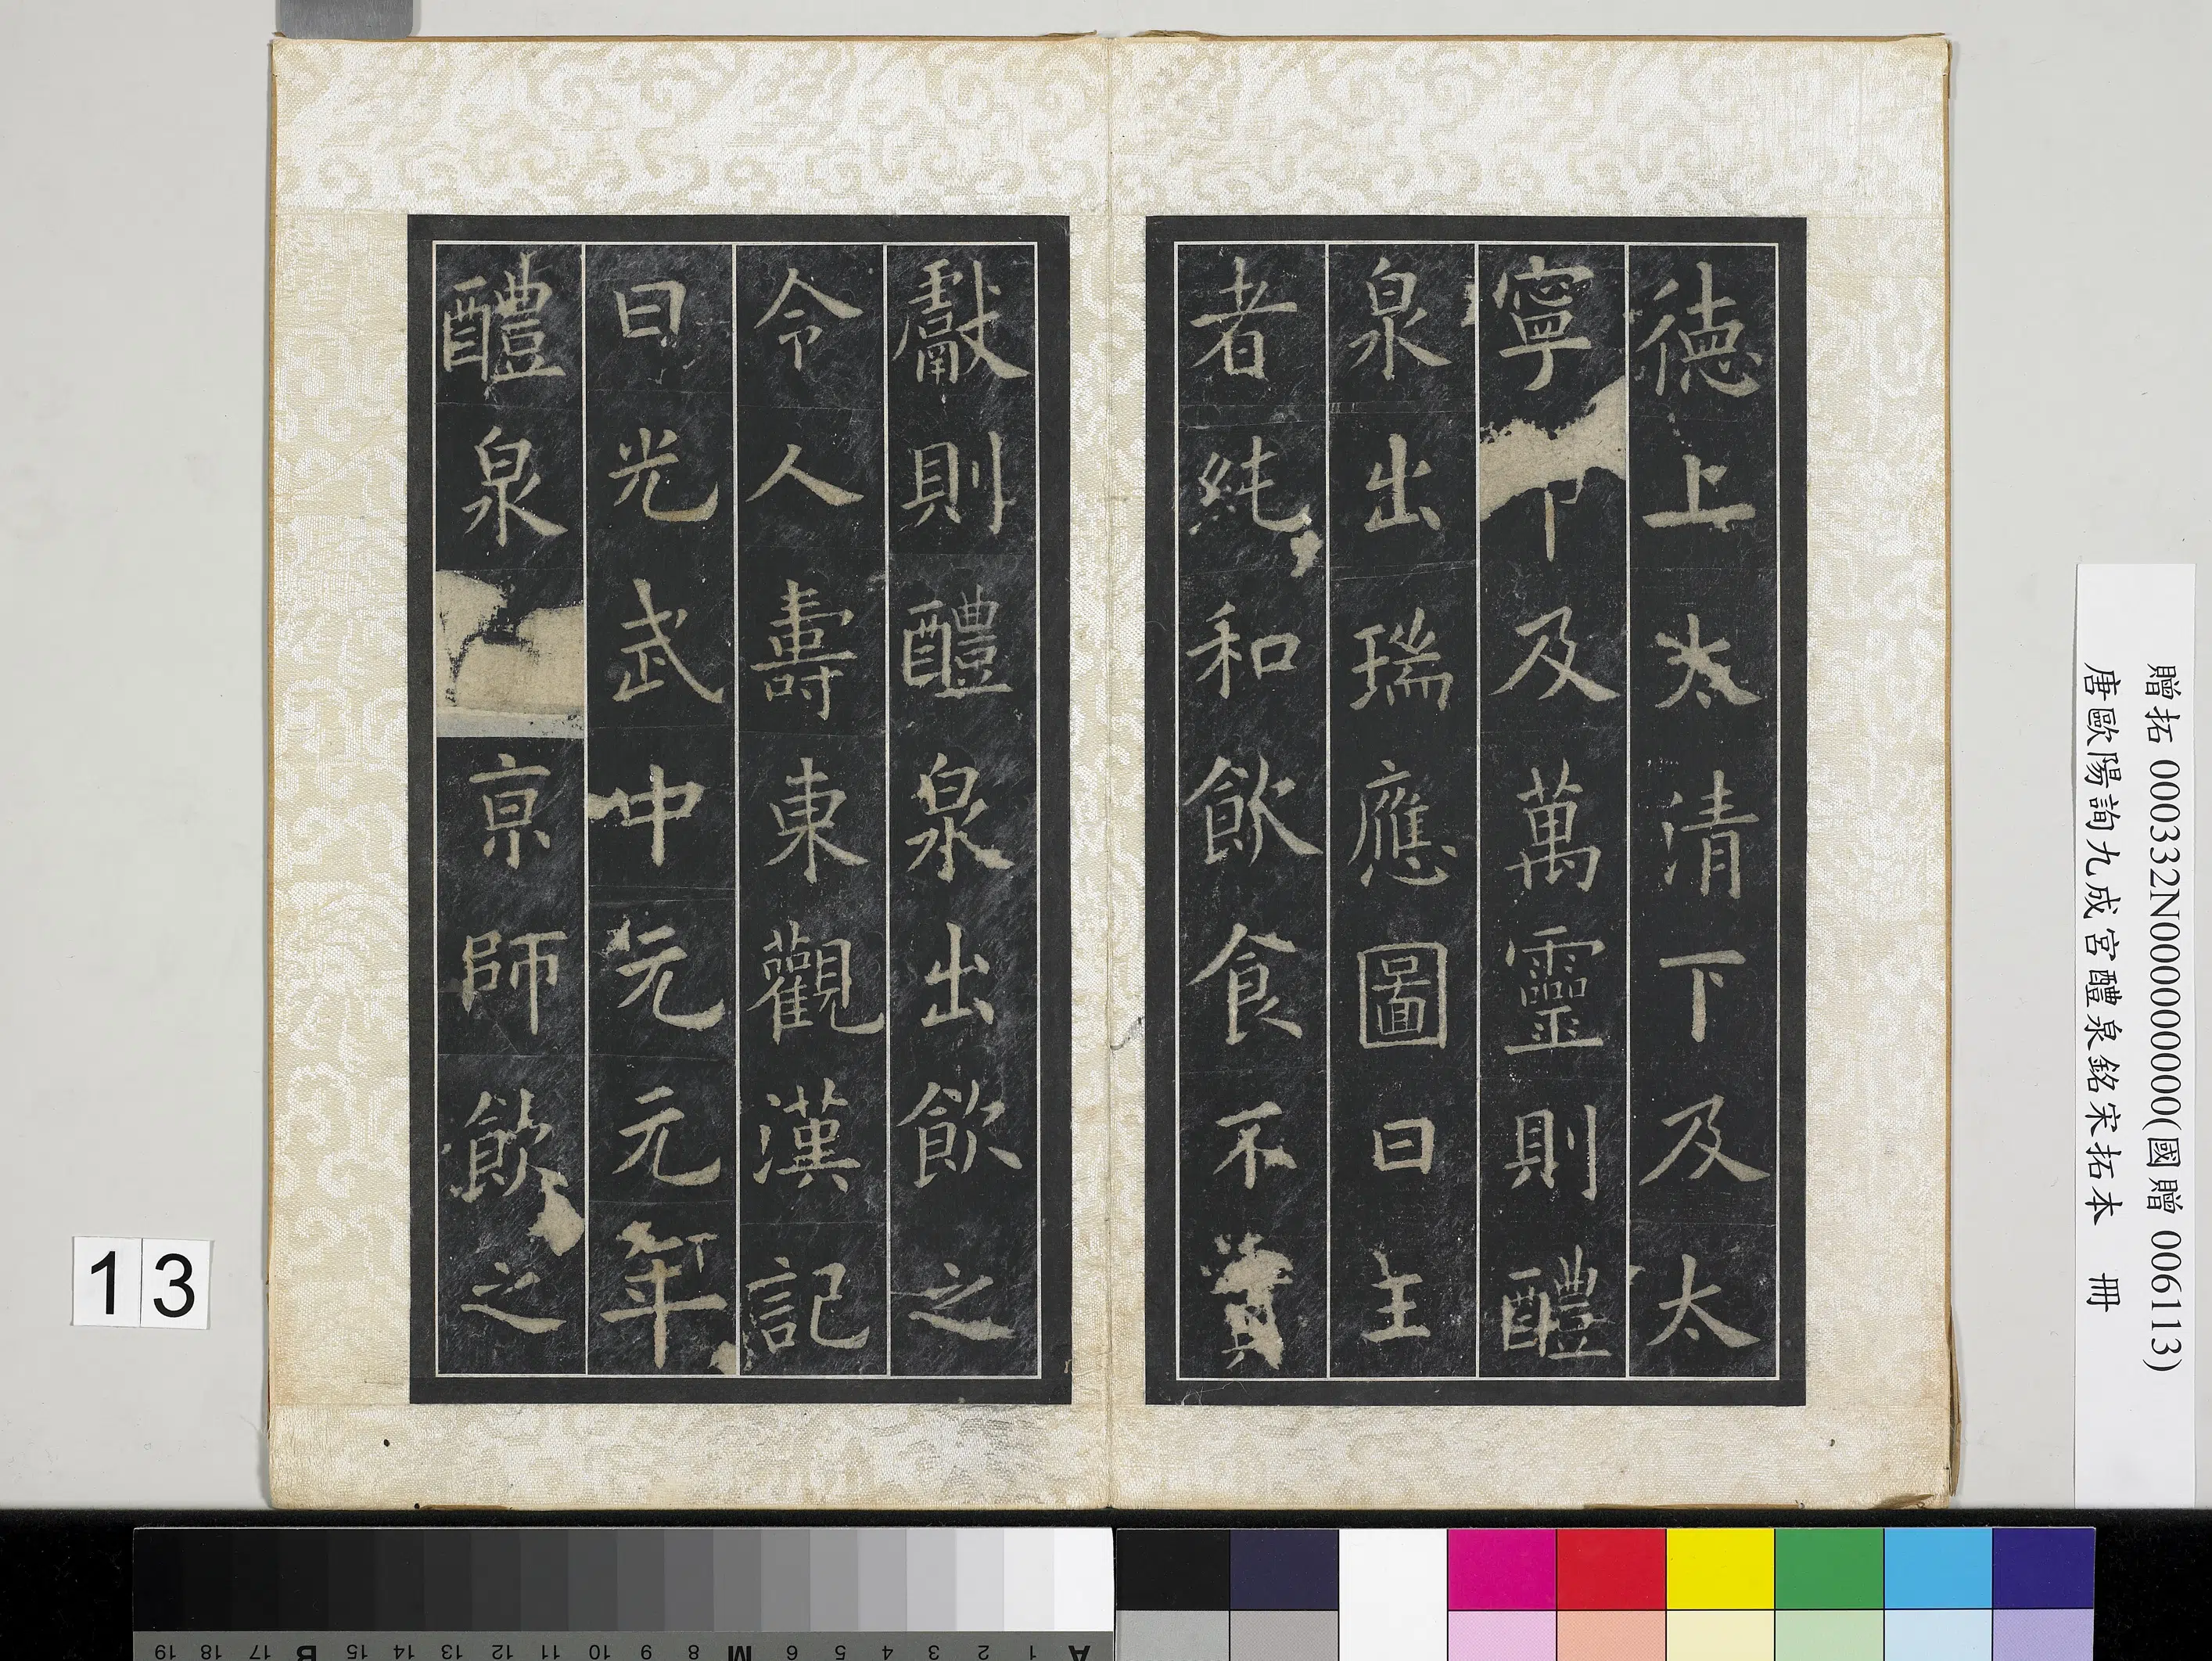 德上太清下及太
寧中及萬靈則醴
泉出瑞應圖曰王
者純和飲食不貢
獻則醴泉出飲之
令人壽東觀漢記
曰光武中元元年
醴泉京師飲之
贈拓 000332N000000000(國贈 006113)
唐歐陽詢九成宮醴泉銘宋拓本 冊
13
A 1 2 3 4 5 6 M 8 9 10 11 12 13 14 15 B 17 18 19